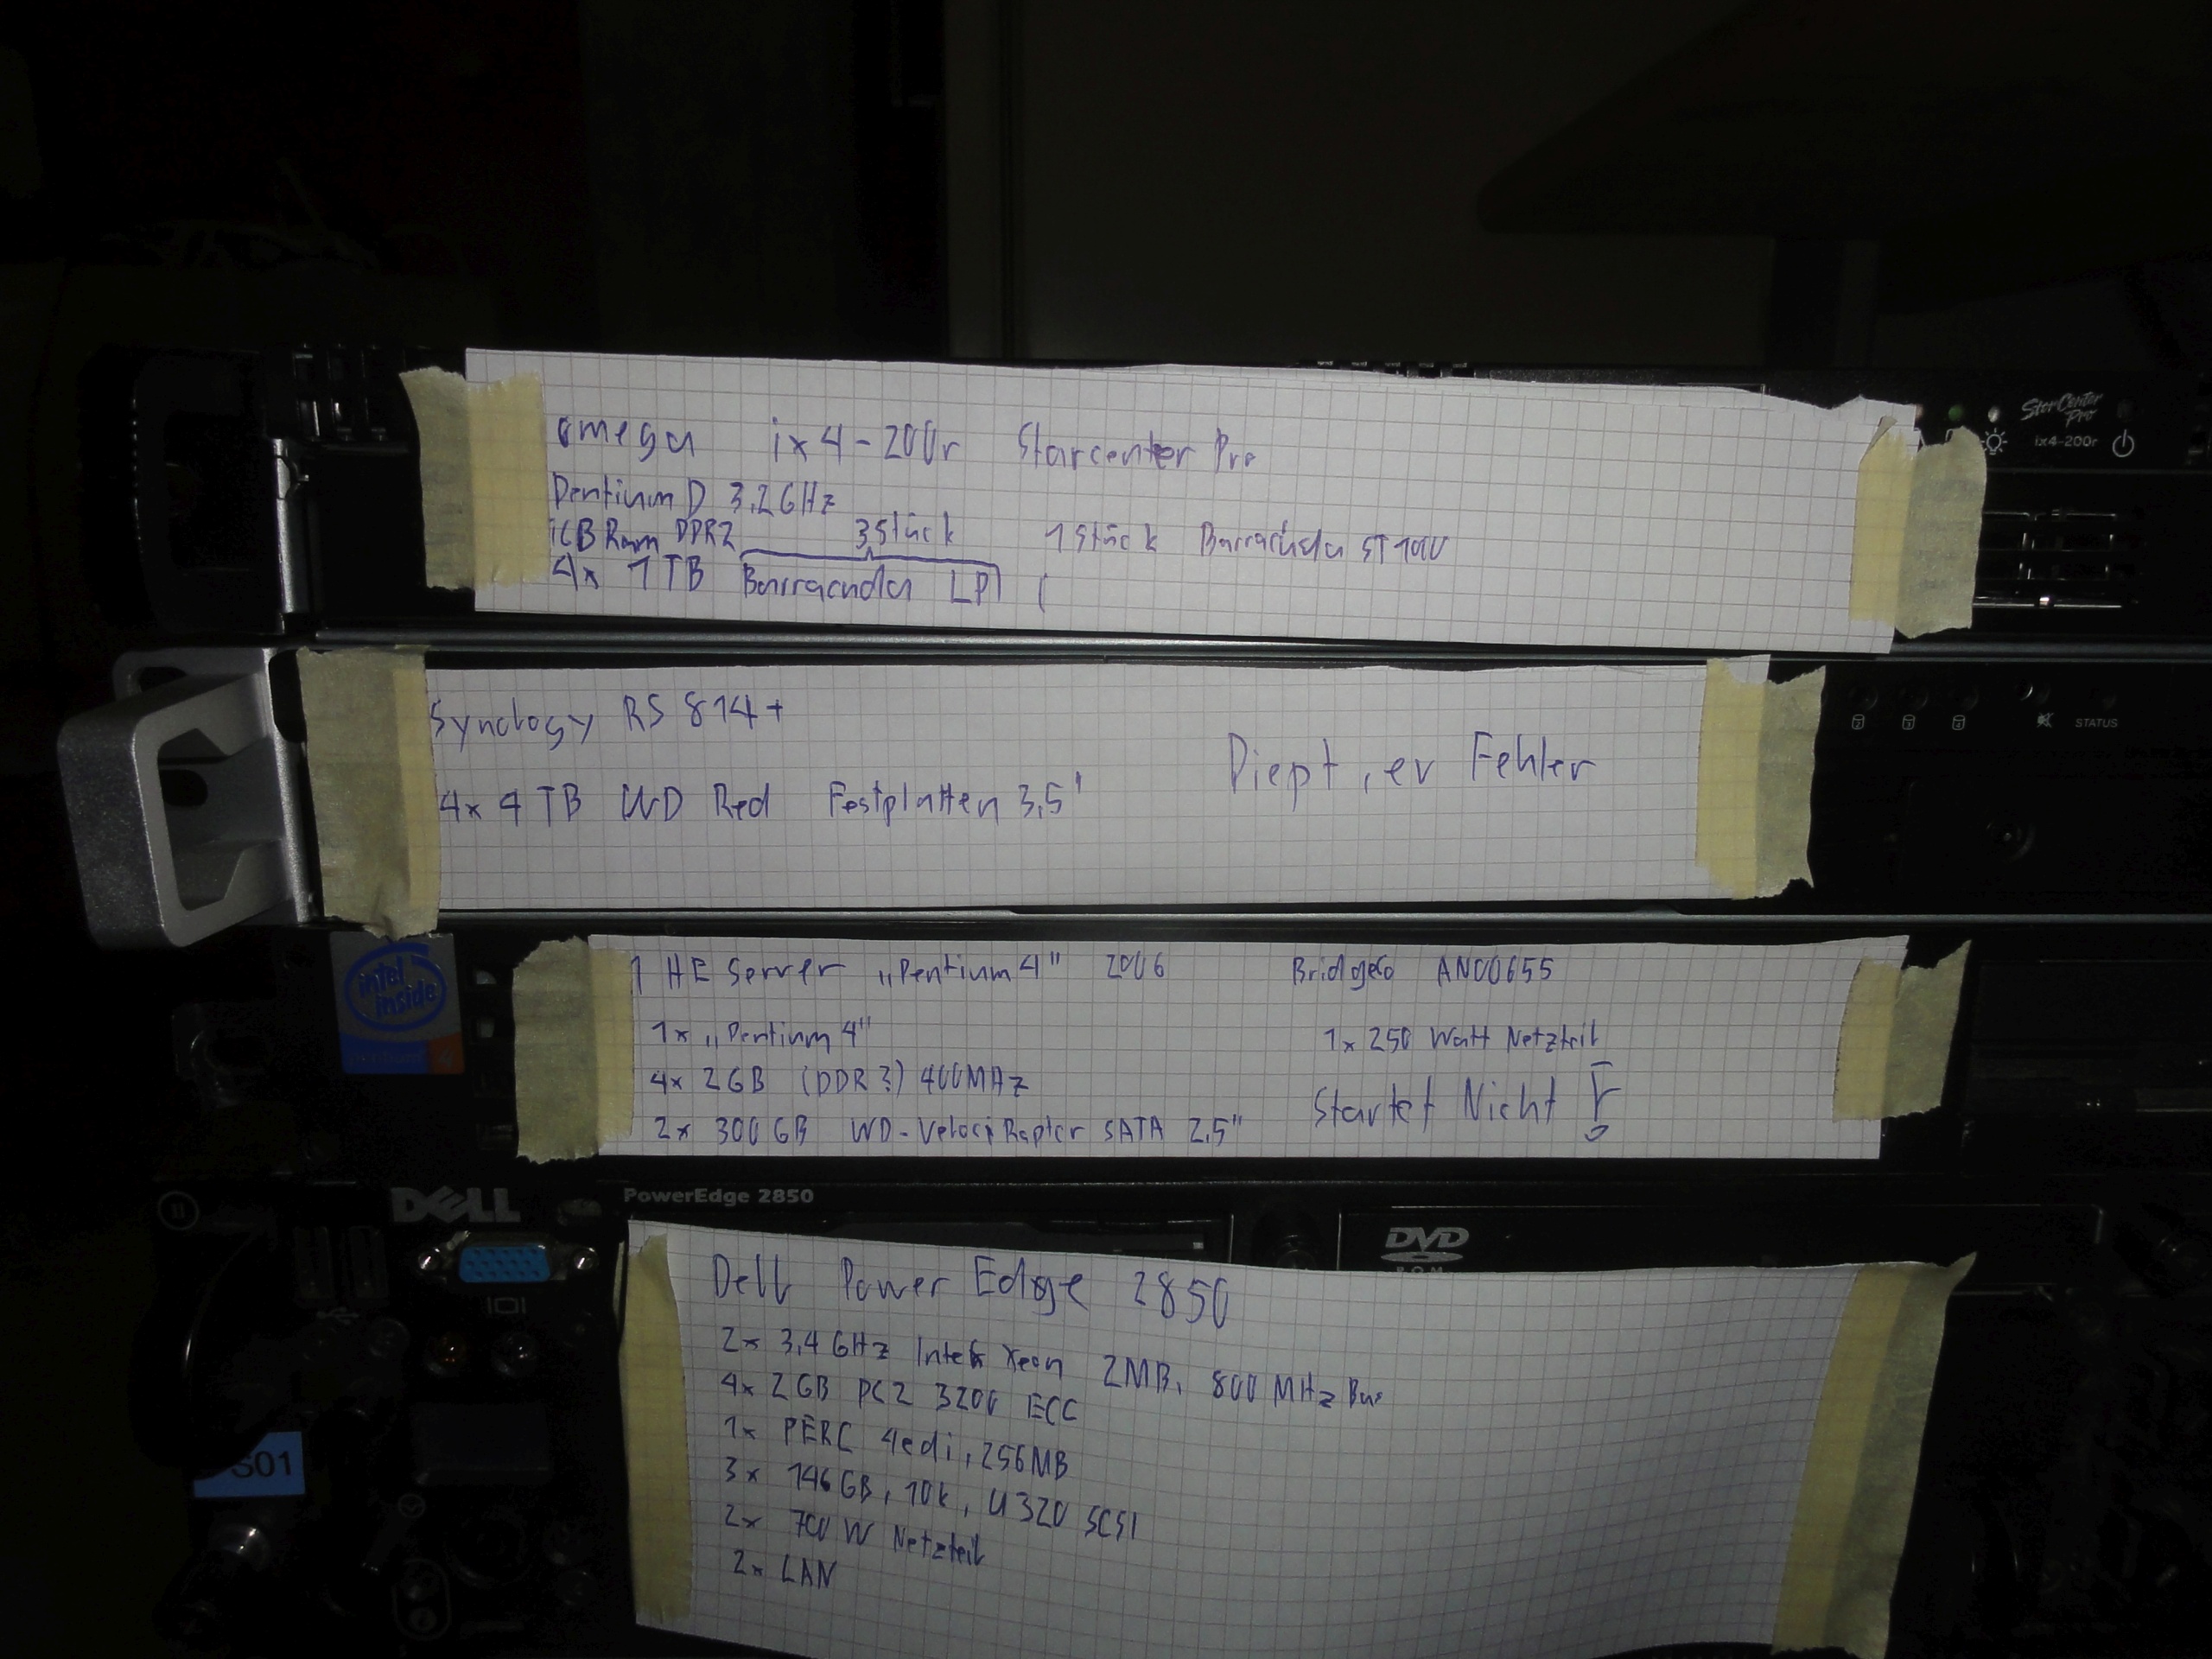 StorCenter
Pro
ix4-200r
omega ix4-200r Starcenter Pro
Pentium D 3,2GHz
1GB Ram DDR2 3Stück 1Stück Barracuda
4x 1TB Barracuda LP (
2 3 4 STATUS
Synology RS 814+
Piept, ev Fehler
4x 4TB WD Red Festplatten 3,5"
intel
inside
pentium 4
1 HE Server „Pentium 4" 2006 AN00655
1x „Pentium 4" 1x 250 Watt Netzteil
4x 2GB (DDR?) 400MHz
Startet Nicht !
2x 300GB WD-VelociRaptor SATA 2,5"
DELL
PowerEdge 2850
DVD
ROM
Dell Power Edge 2850
2x 3,4GHz Intel Xeon 2MB, 800 MHz Bus
4x 2GB PC2 3200 ECC
1x PERC 4edi, 256MB
3x 146GB, 10k, U320 SCSI
2x 700W Netzteil
2x LAN
S01